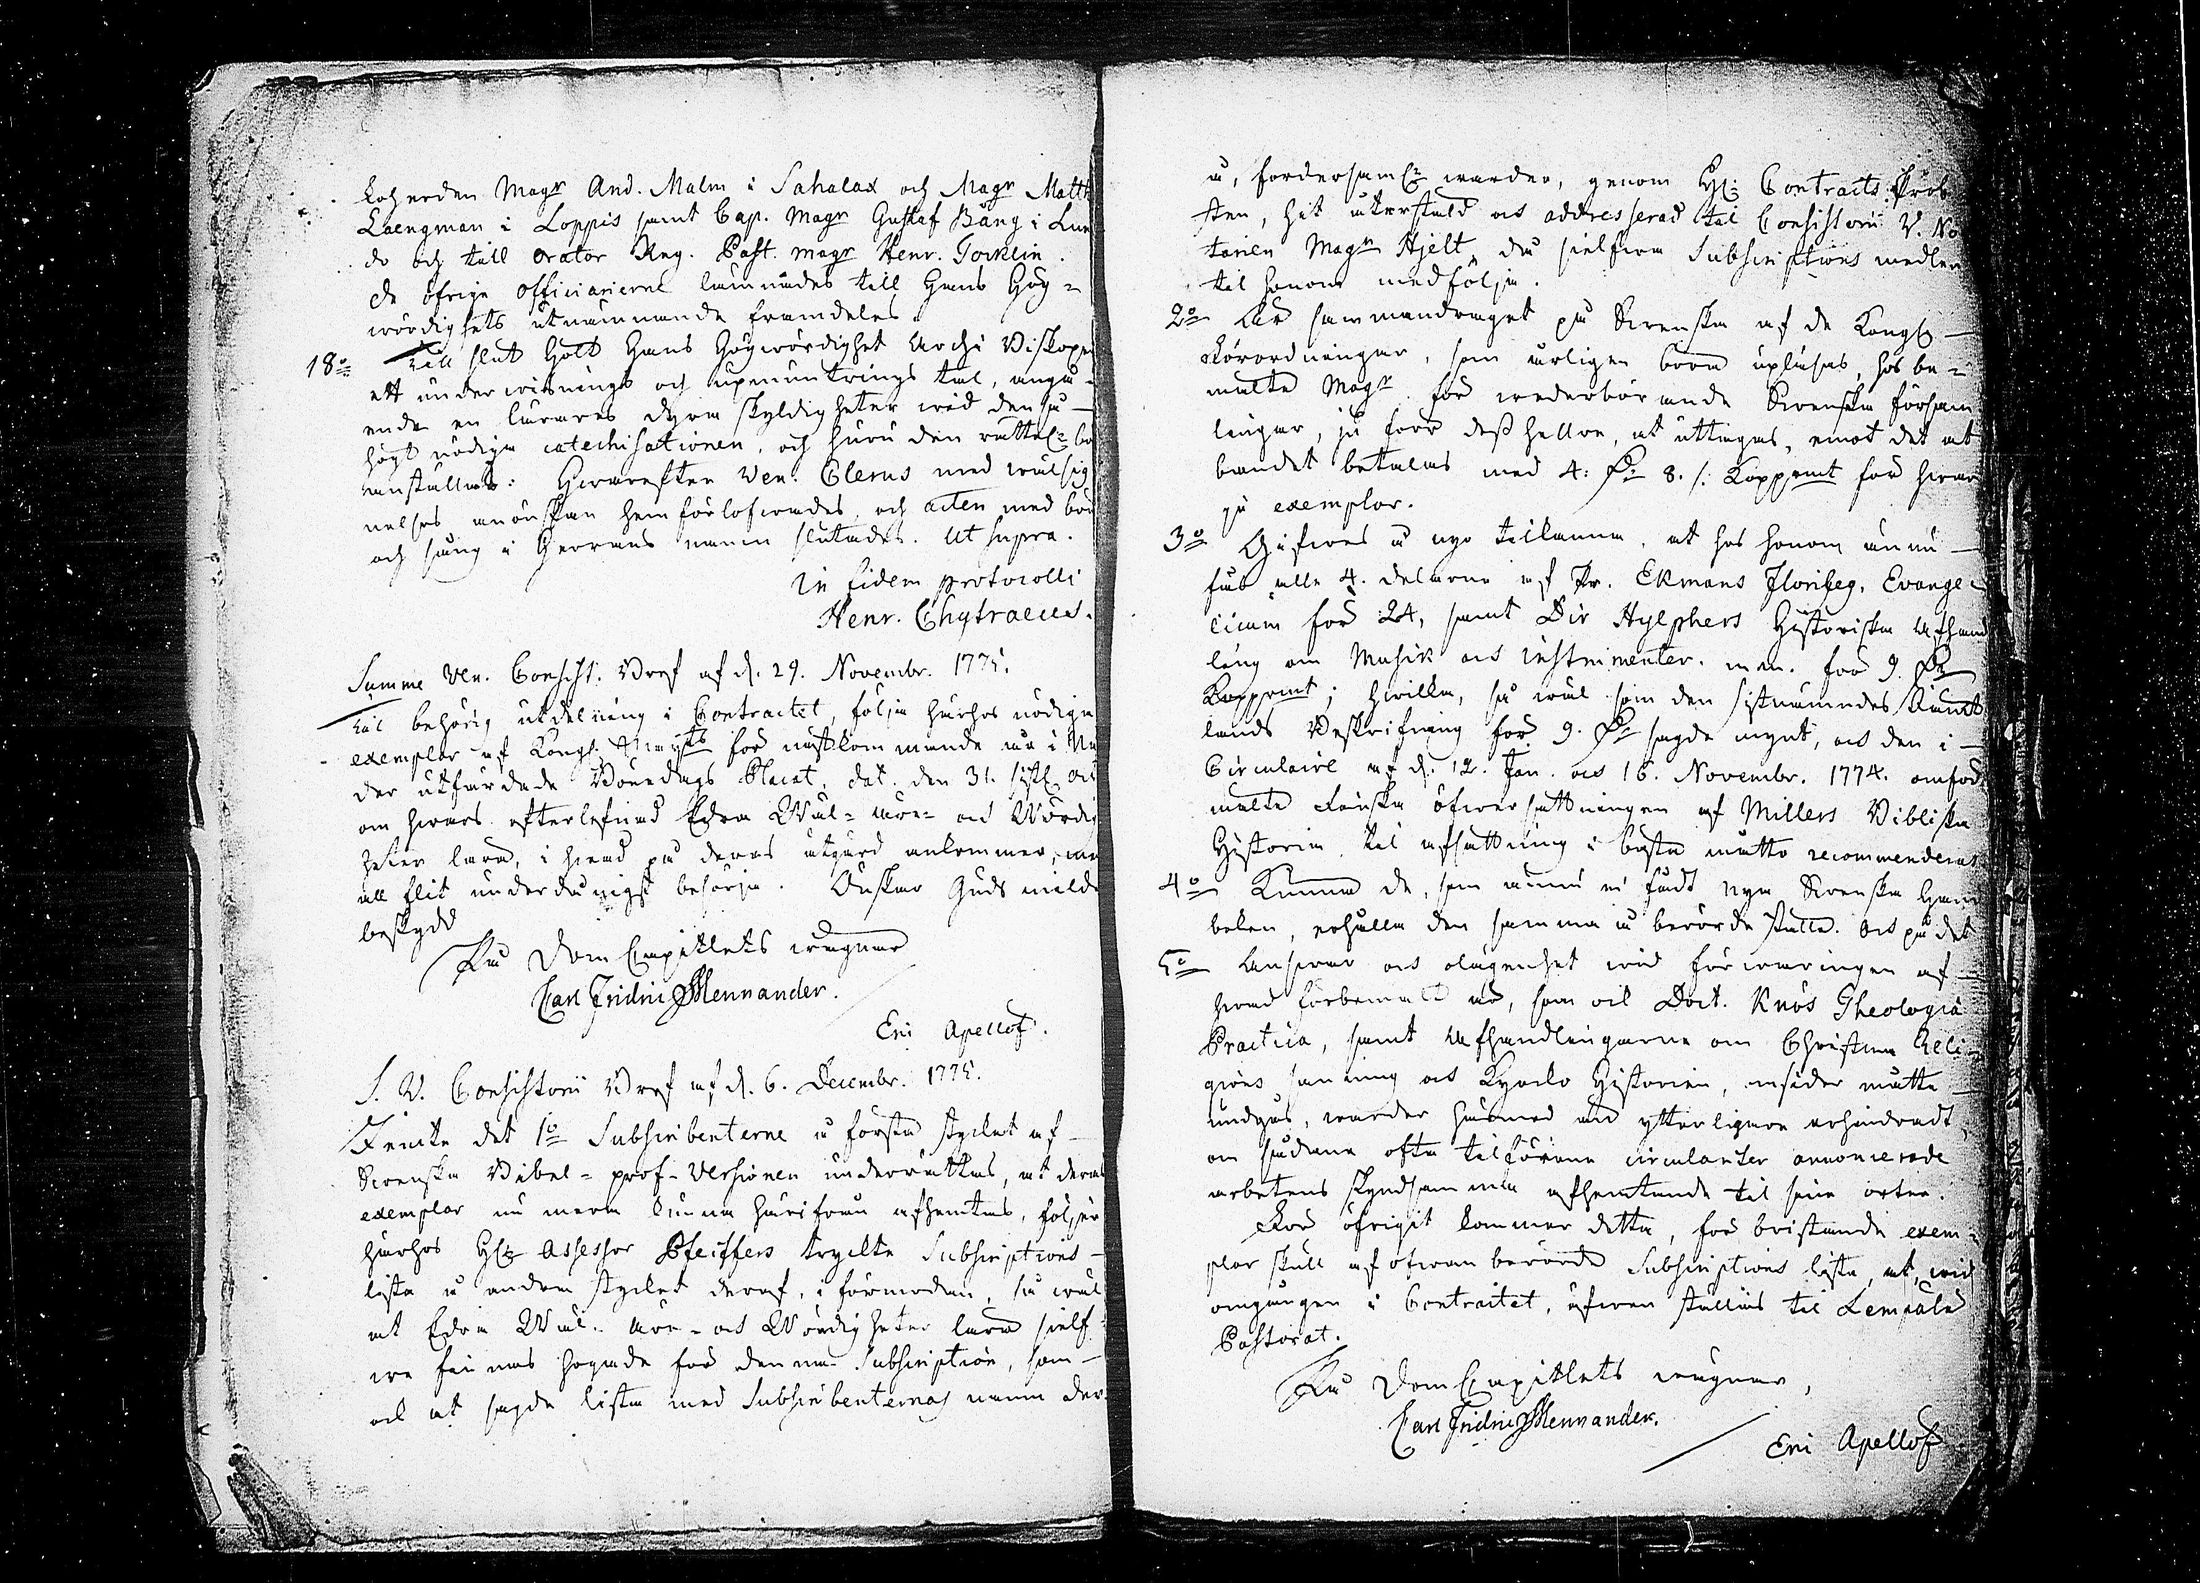 Koherden Magr And. Malm i Sahalax och Magr Matth
Laengman i Loppis samt Cap. Magr Gustaf Bång i Lun
do och till orator Reg. Past. Magr Henr. Forklin.
de öfrige officiarierne lämnades till Hans Hög=
wördighets utnämnande framdeles.
18:o Till slut hölt Hans Högwördighet Archi Biskopen
ett underwisnings och upmuntrings tal, angå-
ende en lärares dyra skyldigheter wid den så
högt nödiga catechisationen, och huru den rättel. bö
anställas: Hwarefter Ven. Clerus med wälsig
nelses anönskan hemförlofwades, och acten med bön
och sång i Herrans namn slutades. Ut supra.
In fidem protocolli
Henr. Chytraeus.
Samme Ven. Consist: Bref af d. 29. Novembr. 1775.
Til behörig utdelning i Contractet, följa härhos nödige
exemplar af Kongl. Maysts för nästkommande år i Nå
der utfärdade Bönedags Placat, dat. den 31. sistl. Oct
om hwars efterlefnad Edra Wäl= ärе= och Wördig
heter lära, i hwad på deras åtgärd ankommer, me
all flit underdånigst besörja. Önskar Guds milda
beskydd
På DomCapitlets wägnar
Carl Fridric Mennander.
Eric Apellof.
S. V. Consistorii Bref af d. 6. Decembr. 1775.
Jemte det 1:o Subscribenterne å första stycket af
Swenska Bibel= prof= Versionen underrättas, at deras
exemplar nu mera kunna härifrån afhemtas, följer
härhos Hr Assessor Pfeiffers tryckte Subscriptions-
lista å andra stycket deraf, i förmodan, så wäl
at Edra Wäl- äre- och Wördigheter lära sielf
we finnas hogade för denna Subscription, som
ock at sagde lista med Subscribenternas namn der
å, fordersaml. warder, genom H: Contracts Prob
sten, hit återstäld och addresserad til Consistorii V. No
tarien Magr Hjelt, då sielfwa Subscriptions medlen
til honom medfölja.
2:o Är sammandraget på Swenska af de Kongl.
Förordningar, som årligen böra upläsas, hos be-
mälte Magr för wederbörande Swenska försam
lingar, ju förr dess hellre, at uttagas, emot det at
bandet betalas med 4: Dr 8. s: Koppmt för hwar
je exemplar.
3:o Gifwes å nyo tilkänna, at hos honom ännu
fås alla 4. delarna af Pr. Ekmans Florileg. Evange=
licum för 24, samt Dir Hylphers Historiska Afhand
ling om Musik och instrumenter. m.m. för 9. Dr
Koppmt; hwilka, så wäl som den sistnämndes
lands Beskrifning för 9. Dr sagde mynt, och den i
Circulaire af d. 12. Jan. och 16. Novembr. 1774. omför
mälte Finska öfwersättningen af Millers Bibliska
Historia, til afsättning i bästa måtto recommenderas
4:o Kunna de, som ännu ei fådt nya Swenska Han
boken, erhålla den samma å berörde ställe. Och på det
5:o Answar och olägenhet wid förwaringen af
hwad förbemält är, som ock Doct. Knös Theologia
Practica, samt Afhandlingarna om Christna Reli
gions sanning och Kyrcko Historien, i må
undgås, warder härmed än ytterligare erhindradt,
om sådane ofta tilförene circulariter annoncerade
arbetens skyndsamma afhemtande til sine orter.
För öfrigit kommer detta, för bristande exem=
plar skull af ofwan berörde Subscriptions lista, at, wid
omgången i Contractet, äfwen ställas til Lempälä
Pastorat.
På DomCapitlets wägnar,
Carl Fridric Mennander.
Eric Apellof